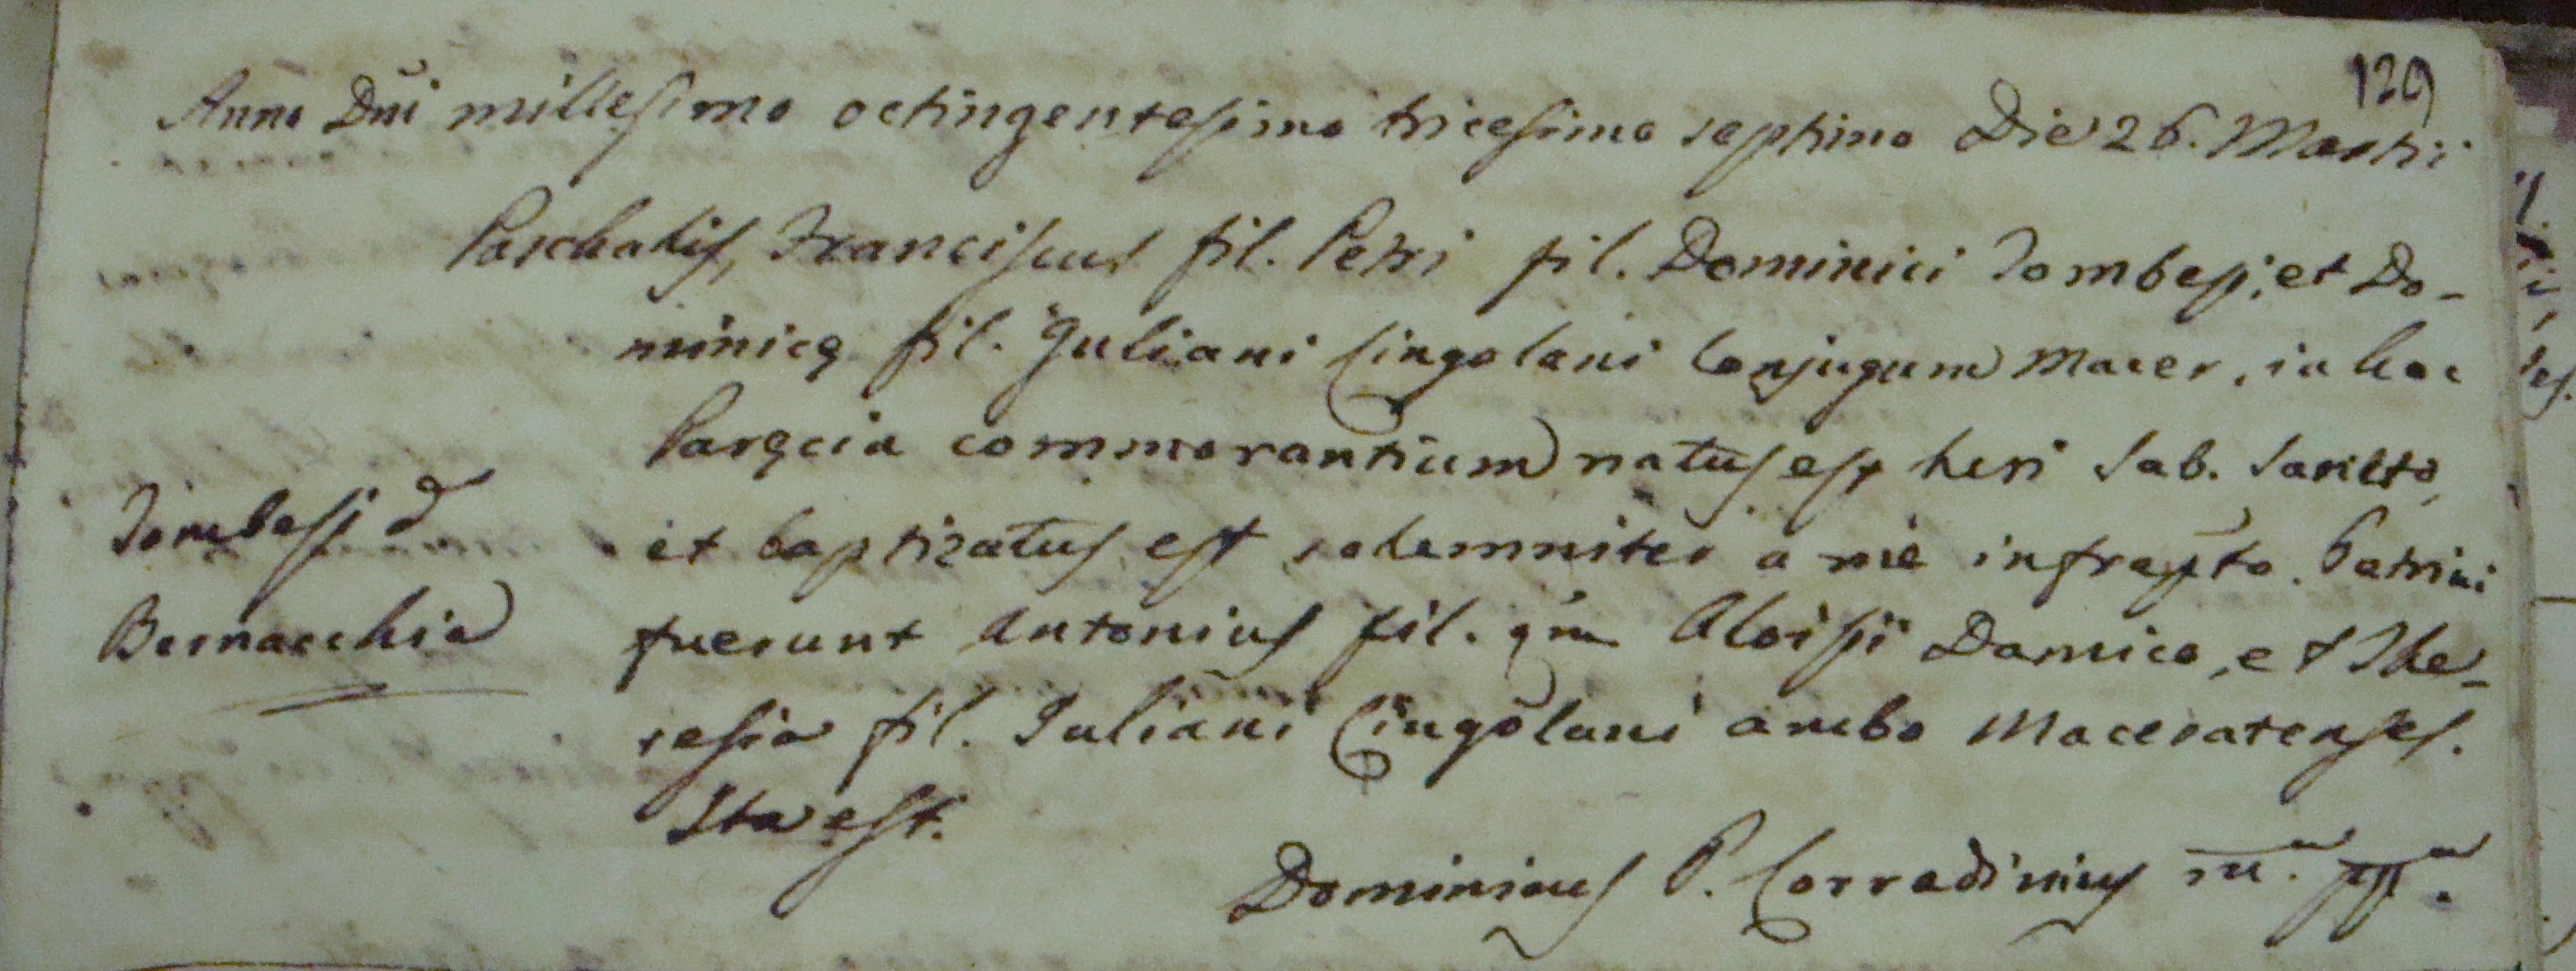 129
Anno Dni millesimo octingentesimo tricesimo septimo Die 26. Martii
Paschalis, Franciscus fil. Petri fil. Dominici Tombesi, et Do-
minicę fil. Juliani Cingolani Conjugum Macer. in hac
Paręcia commorantium natus est heri Sab. Sancto,
Tombesi
et baptizatus est solemniter a me infrapto. Patrini
Bernacchia
fuerunt Antonius fil. qm Aloisii Damico, et The-
resia fil. Juliani Cingolani ambo Maceratenses.
Ita est.
Dominicus P. Corradinus m.a pp.a